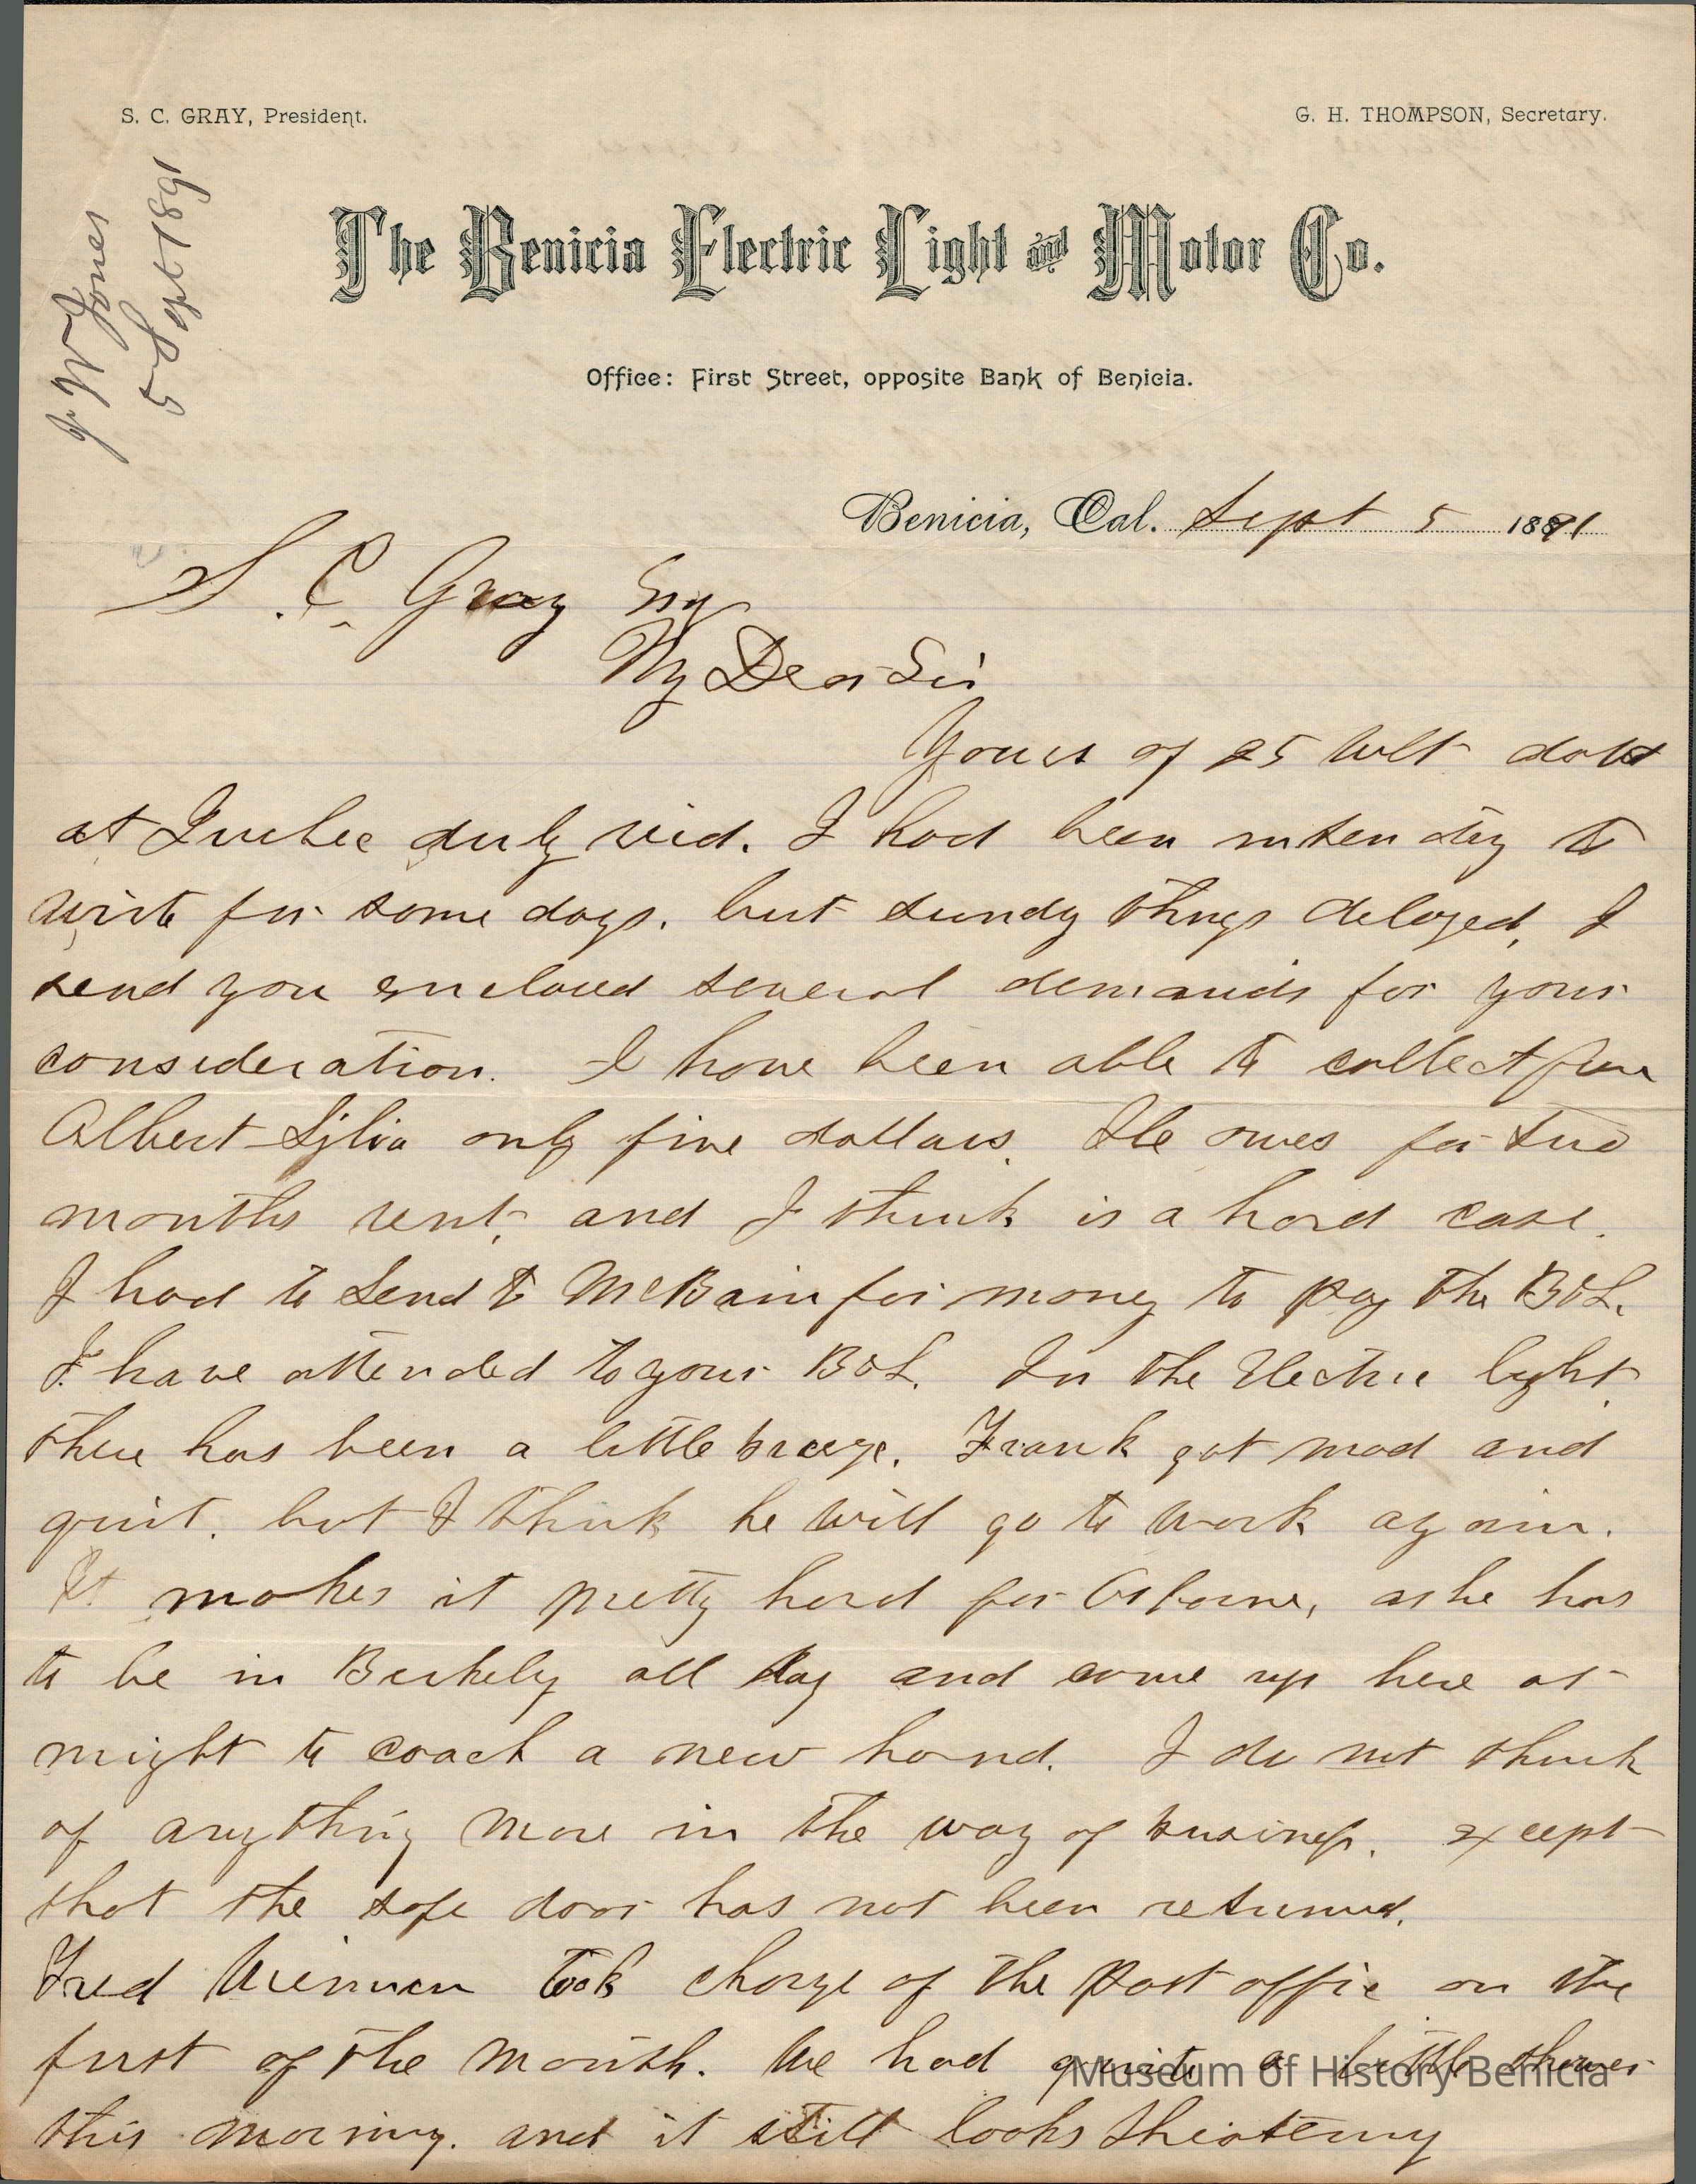 S. C. GRAY, President.
G. H. THOMPSON, Secretary.
J W Jones
5 Sept 1891
The Benicia Electric Light and Motor Co.
Office: First Street, opposite Bank of Benicia.
Benicia, Cal. Sept 5 1891
S. C. Gray Esq
My Dear Sir
Yours of 25 Ult dated
at Quebec duly recd. I had been intending to
write for some days. but sundry things delayed, I
send you enclosed several demands for your
consideration. I have been able to collect from
Albert Sylvia only five dollars. He owes for two
months rent, and I think is a hard case.
I had to send to McBain for money to pay the B&L.
I have attended to your B&L. In the Electric light
there has been a little breeze. Frank got mad and
quit. but I think he will go to work again.
It makes it pretty hard for Osborne, as he has
to be in Berkely all day and come up here at
night to coach a new hand. I do not think
of anything more in the way of business. except
that the safe door has not been returned.
Fred took charge of the Post office on the
first of the month. We had quite a little shower
this morning. and it still looks threatening
Museum of History Benicia